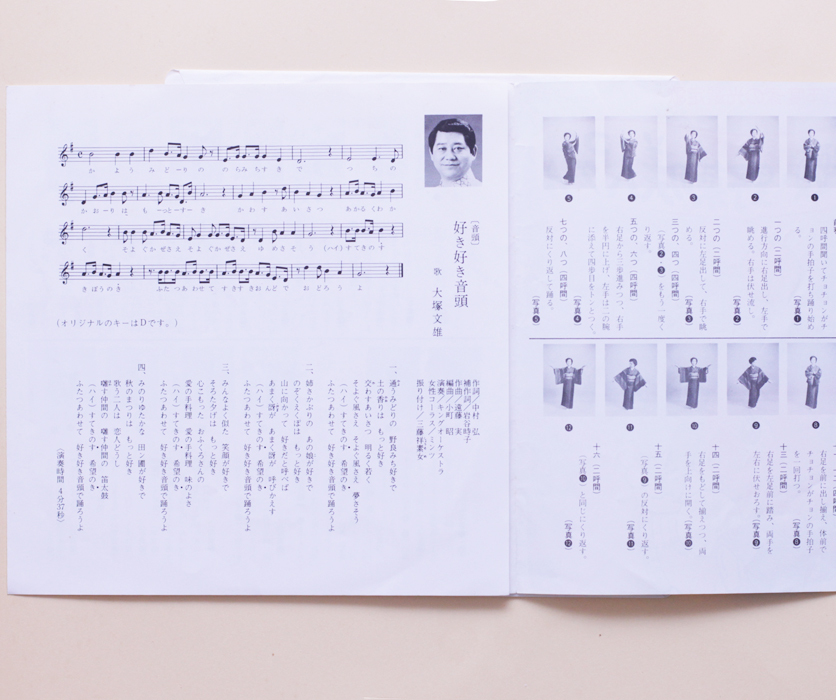 〔音頭〕
好き好き音頭
歌 大塚文雄
か よう みどーりの のらみちすきで つちの
かおーりは、も っとーすーき かわす あいさつ あかるくわか
く そよぐかぜさえそよぐかぜさえ ゆめさそう (ハイ)すてきのす
きぼうのき ふたつあわせて すきすきおんどで おどろうよ
(オリジナルのキーはDです。)
作詞／中村 弘
補作詞／岩谷時子
作曲／遠藤 実
編曲／小町 昭
演奏／キングオーケストラ
女性コーラス／ミンツ
振り付け／三藤祥素女
一、通うみどりの 野良みち好きで
土の香りは もっと好き
交わすあいさつ 明るく若く
そよぐ風さえ そよぐ風さえ 夢さそう
(ハイ) すてきのす 希望のき
ふたつあわせて 好き好き音頭で踊ろうよ
二、姉さかぶりの あの娘が好きで
のぞくえくぼは もっと好き
山に向かって 好きだと呼べば
あまく谺が あまく谺が 呼びかえす
(ハイ) すてきのす 希望のき
ふたつあわせて 好き好き音頭で踊ろうよ
三、みんなよく似た 笑顔が好きで
そろた夕げは もっと好き
心こもった おふくろさんの
愛の手料理 愛の手料理 味のよさ
(ハイ) すてきのす 希望のき
ふたつあわせて 好き好き音頭で踊ろうよ
四、みのりゆたかな 田ン圃が好きで
秋のまつりは もっと好き
歌う二人は 恋人どうし
囃す仲間の 囃す仲間の 笛太鼓
(ハイ) すてきのす 希望のき
ふたつあわせて 好き好き音頭で踊ろうよ
(演奏時間 4分37秒)
❶
❷
❸
❹
❺
四呼間聞いてチョチョンがチ
ョンの手拍子を打ち踊り始め
る。 (写真❶)
一つの (二呼間)
進行方向に右足出し、左手で
眺める。右手は伏せ流し。
(写真❷)
二つの (二呼間)
反対に左足出して、右手で眺
める。 (写真❸)
三つの、四つ (四呼間)
(写真❷❸)をもう一度く
り返す。
五つの、六つ (四呼間)
右足から三歩進みつつ、右手
を半円に上げ、左手は二の腕
に添えて四歩目をトンとつく。
(写真❹)
七つの、八つ (四呼間)
反対にくり返して踊る。
(写真❺)
❽
❾
❿
⓫
⓬
右足を前に出し揃え、体前で
チョチョンがチョンの手拍子
を一回打つ。 (写真❽)
十三 (二呼間)
右足を左足前に踏み、両手を
左右に伏せおろす。
(写真❾)
十四 (二呼間)
右足をもどして揃えつつ、両
手を上向けに開く。(写真❿)
十五 (二呼間)
(写真❾)の反対にくり返す。
(写真⓫)
十六 (二呼間)
(写真❿)と同じにくり返す。
(写真⓬)